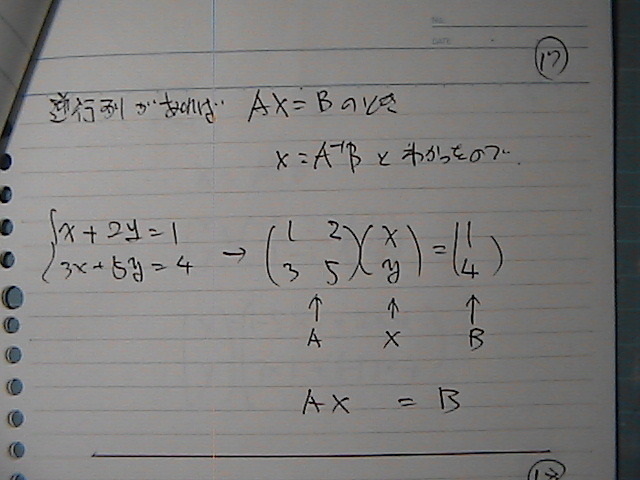 NO.
DATE
⑰
逆行列があれば AX=Bのとき
X=A⁻¹B とわかったので
{x+2y=1
3x+5y=4 → (1 2
3 5)(x
y)=(1
4)
↑ ↑ ↑
A X B
AX = B